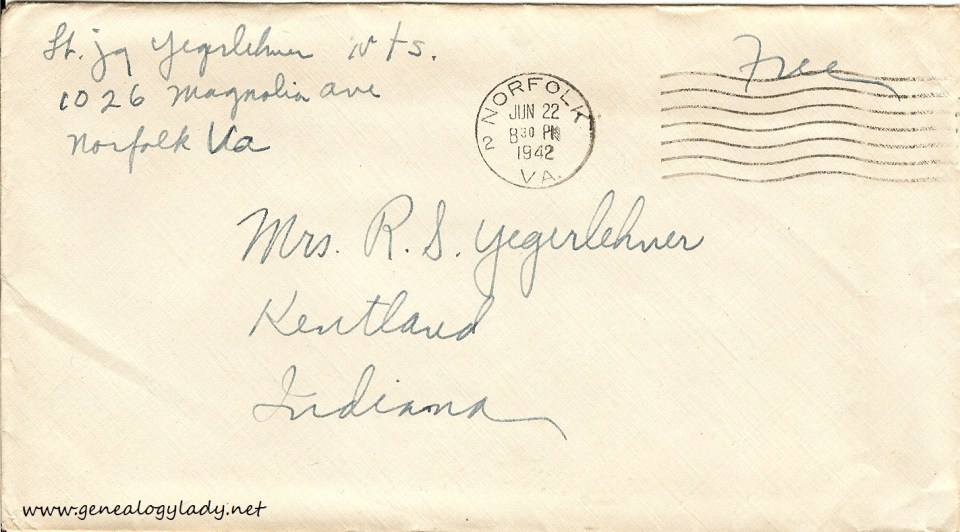 Lt. jg Yegerlehner NTS.
1026 Magnolia ave
Norfolk Va
Free
NORFOLK
JUN 22
8 30 PM
1942
2
VA.
Mrs. R. S. Yegerlehner
Kentland
Indiana
www.genealogylady.net